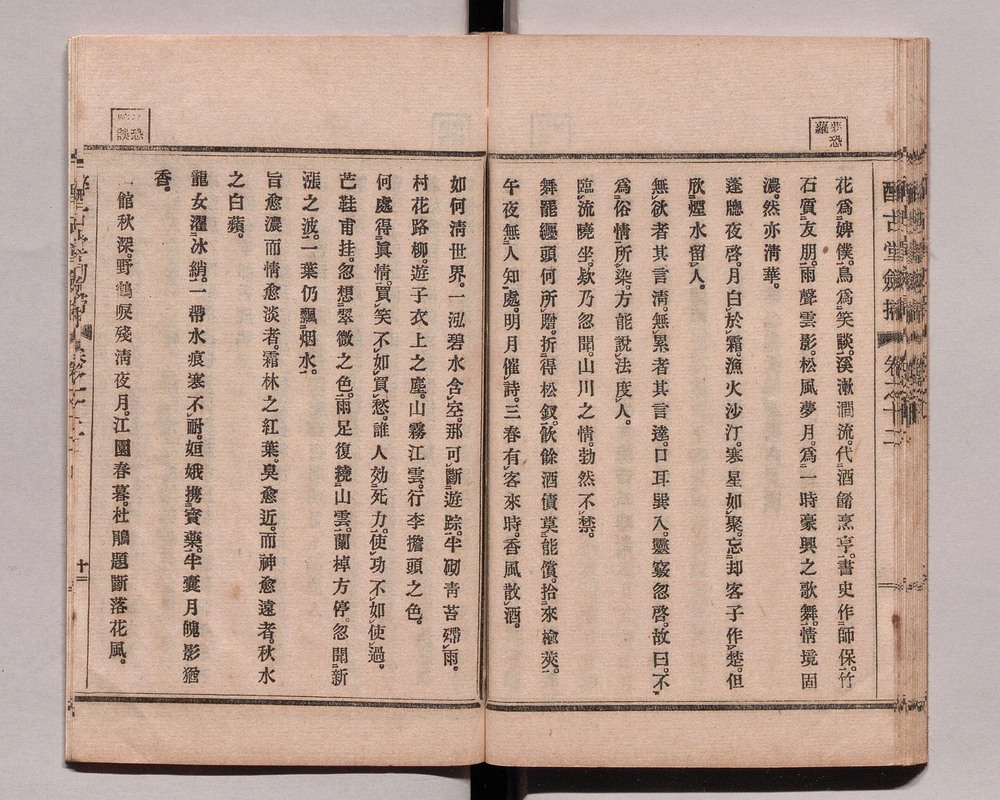 花爲婢僕。鳥爲笑談。溪漱澗流。代酒餚烹亨。書史作師保。竹
石質友朋。雨聲雲影。松風夢月。爲一時豪興之歌舞。情境固
濃。然亦淸華。
蓬牕夜啓。月白於霜。漁火沙汀。寒星如聚。忘却客子作楚。但
欣煙水留人。
無欲者其言淸。無累者其言達。口耳巽入。靈竅忽啓。故曰。不
爲俗情所染。方能說法度人。
臨流曉坐。欸乃忽聞。山川之情。勃然不禁。
舞罷纒頭何所贈。折得松釵。飮餘酒債莫能償。拾來楡莢。
午夜無人知處。明月催詩。三春有客來時。香風散酒。
如何淸世界。一泓碧水含空。那可斷遊踪。半砌靑苔殢雨。
村花路柳。遊子衣上之塵。山霧江雲。行李擔頭之色。
何處得眞情。買笑不如買愁。誰人効死力。使功不如使過。
芒鞋甫挂。忽想翠微之色。兩足復繞山雲。蘭棹方停。忽聞新
漲之波。一葉仍飄烟水。
旨愈濃而情愈淡者。霜林之紅葉。臭愈近。而神愈遠者。秋水
之白蘋。
龍女濯冰綃。一帶水痕寒不耐。姮娥攜寶藥。半囊月魄影猶
香。
一館秋深。野鶴唳殘淸夜月。江園春暮。杜鵑題斷落花風。
醉古堂劍掃 卷之十二
十二